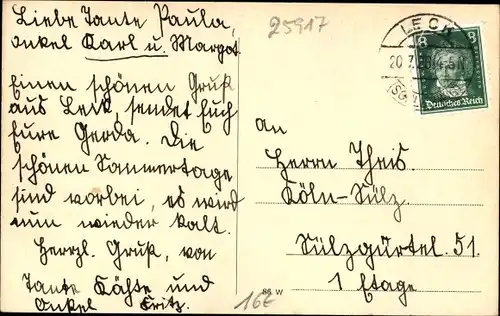 Liebe Tante Paula,
onkel Karl u. Margot.
Einen schönen Gruß
aus Leck, sendet Euch
Eure Gerda. Die
schönen Sommertage
sind vorbei, es wird
nun wieder kalt.
Herzl. Gruß, von
Tante Käthe und
Onkel Fritz.
25917
LECK
20.7.
8 8
Deutsches Reich
An
Herrn Theis.
Köln-Sülz.
Sülzgürtel. 51.
1 Etage
86 W
16€